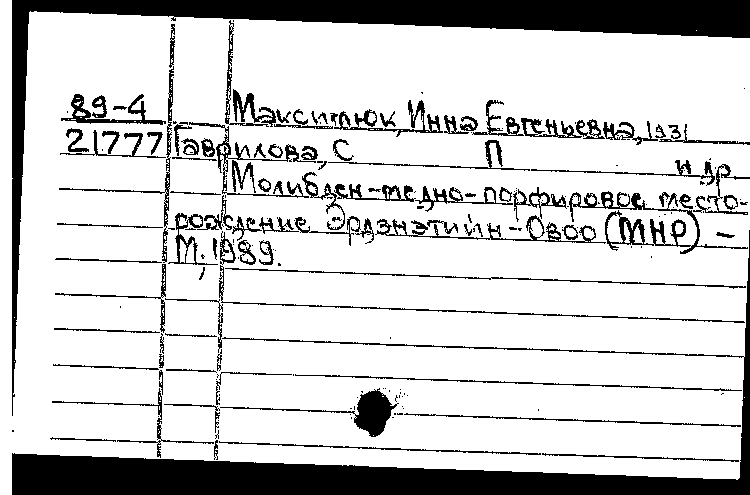 89-4 Максимюк, Инна Евгеньевна, 1931
21777 Гаврилова, С П и др
Молибден-медно-порфировое место-
рождение Эрдэнэтийн-Овоо (МНР) –
М., 1989.